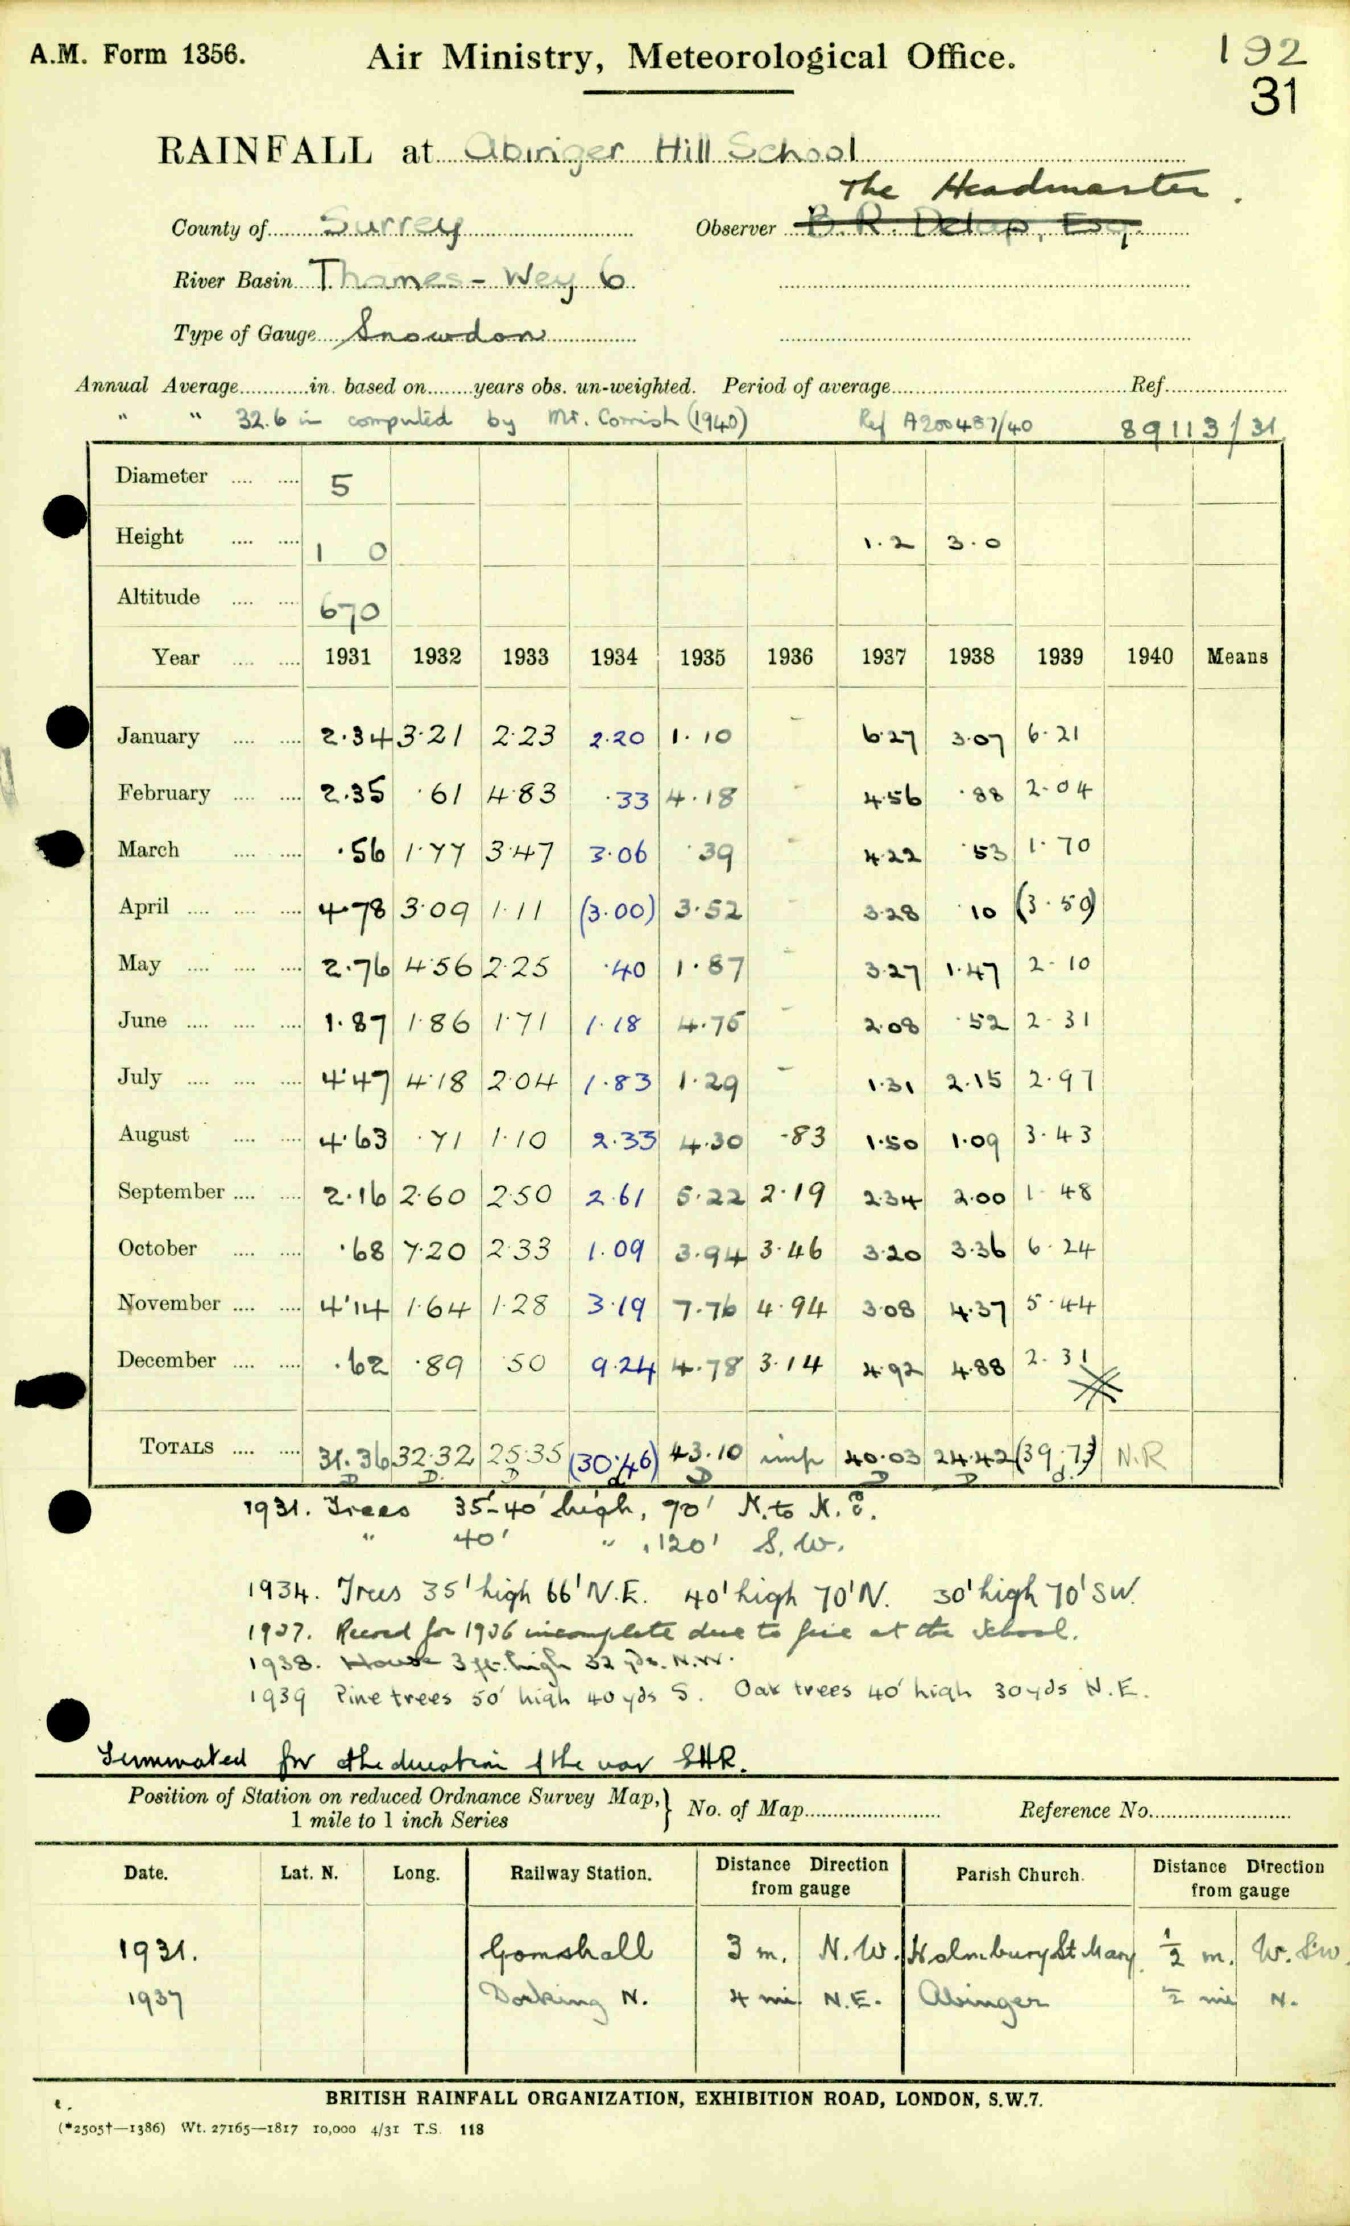 A.M. Form 1356. Air Ministry, Meteorological Office. 192
31
RAINFALL at Abinger Hill School
The Headmaster.
County of Surrey Observer B. R. Delap, Esq.
River Basin Thames - Wey 6
Type of Gauge Snowdon
Annual Average in. based on years obs. un-weighted. Period of average Ref.
" " 32.6 in computed by Mr. Cornish (1940) Ref A200487/40 89113/31
Diameter 5
Height 1 0 1.2 3.0
Altitude 670
Year 1931 1932 1933 1934 1935 1936 1937 1938 1939 1940 Means
January 2.34 3.21 2.23 2.20 1.10 - 6.27 3.07 6.21
February 2.35 .61 4.83 .33 4.18 - 4.56 .88 2.04
March .56 1.77 3.47 3.06 .39 - 4.22 .53 1.70
April 4.78 3.09 1.11 (3.00) 3.52 - 3.28 .10 (3.50)
May 2.76 4.56 2.25 .40 1.87 - 3.27 1.47 2.10
June 1.87 1.86 1.71 1.18 4.75 - 2.08 .52 2.31
July 4.47 4.18 2.04 1.83 1.29 - 1.31 2.15 2.97
August 4.63 .71 1.10 2.33 4.30 .83 1.50 1.09 3.43
September 2.16 2.60 2.50 2.61 5.22 2.19 2.34 2.00 1.48
October .68 7.20 2.33 1.09 3.94 3.46 3.20 3.36 6.24
November 4.14 1.64 1.28 3.19 7.76 4.94 3.08 4.37 5.44
December .62 .89 .50 9.24 4.78 3.14 4.92 4.88 2.31
TOTALS 31.36 32.32 25.35 (30.46) 43.10 imp 40.03 24.42 (39.73) N.R
D D D d D D D d.
1931. Trees 35'-40' high, 70' N. to N.E.
" 40' " , 120' S.W.
1934. Trees 35' high 66' N.E. 40' high 70' N. 30' high 70' SW.
1937. Record for 1936 incomplete due to fire at the School.
1938. House 3 ft. high 32 yds. N.W.
1939 Pine trees 50' high 40 yds S. Oak trees 40' high 30 yds N.E.
Terminated for the duration of the war
Position of Station on reduced Ordnance Survey Map, 1 mile to 1 inch Series } No. of Map Reference No.
Date. Lat. N. Long. Railway Station. Distance Direction from gauge Parish Church. Distance Direction from gauge
1931. Gomshall 3 m. N.W. Holmbury St Mary ½ m. W. SW.
1937 Dorking N. 4 mi. N.E. Abinger ½ mi N.
BRITISH RAINFALL ORGANIZATION, EXHIBITION ROAD, LONDON, S.W.7.
(*2505†—1386) Wt. 27165—1817 10,000 4/31 T.S. 118